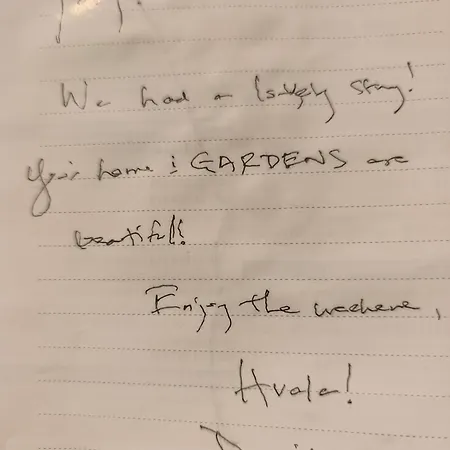 We had a lovely stay!
Your home & GARDENS are
beautiful!
Enjoy the weekend,
Hvala!